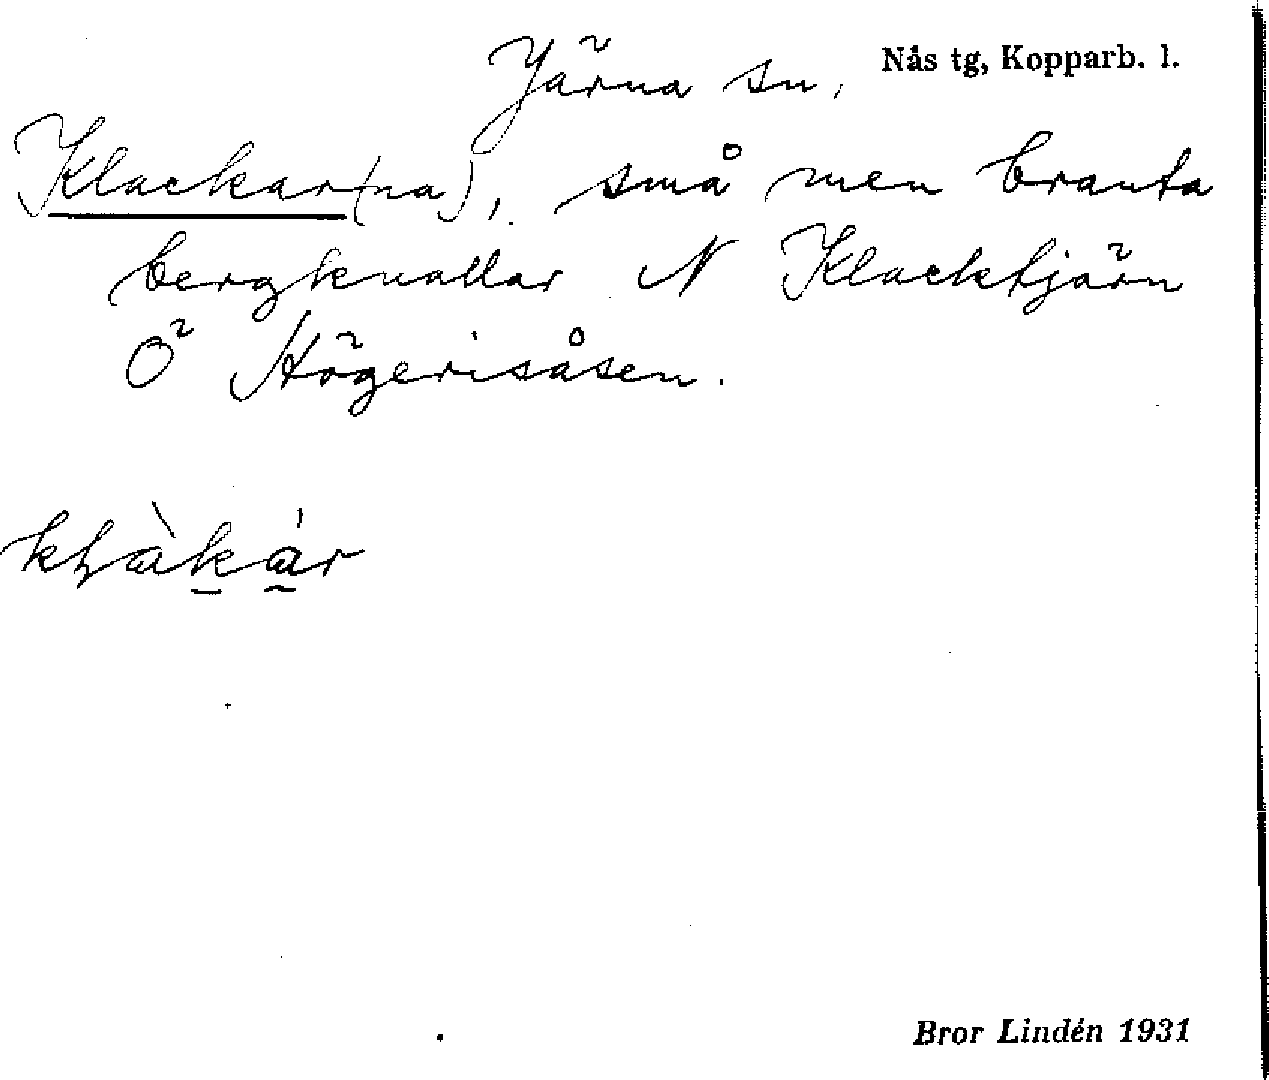 Järna sn, Nås tg, Kopparb. l.
Klackar(na), små men branta
bergknallar N Klacktjärn
Ö Högerisåsen.
kḷàkár
Bror Lindén 1931